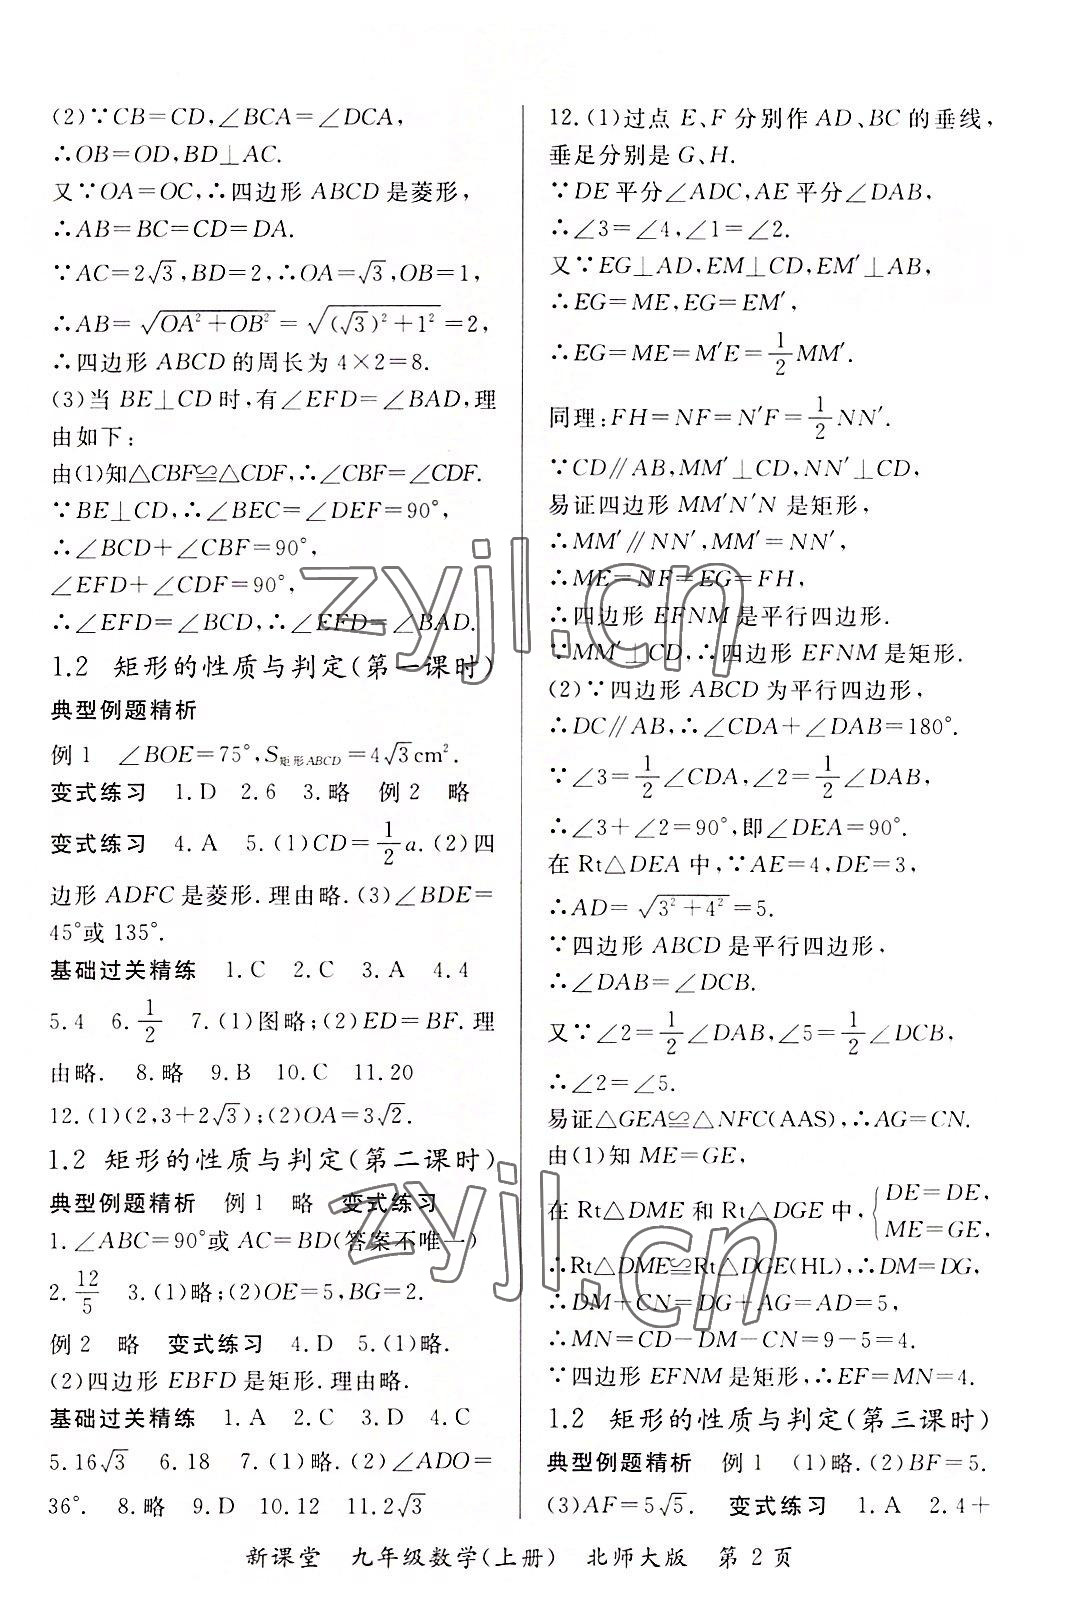 (2)∵CB=CD,∠BCA=∠DCA,
∴OB=OD,BD⊥AC.
又∵OA=OC,∴四边形 ABCD 是菱形,
∴AB=BC=CD=DA.
∵AC=2√3,BD=2,∴OA=√3,OB=1,
∴AB=√(OA²+OB²)=√((√3)²+1²)=2,
∴四边形 ABCD 的周长为 4×2=8.
(3)当 BE⊥CD 时,有∠EFD=∠BAD,理
由如下:
由(1)知△CBF≌△CDF,∴∠CBF=∠CDF.
∵BE⊥CD,∴∠BEC=∠DEF=90°,
∴∠BCD+∠CBF=90°,
∠EFD+∠CDF=90°,
∴∠EFD=∠BCD,∴∠EFD=∠BAD.
1.2 矩形的性质与判定(第一课时)
典型例题精析
例1 ∠BOE=75°,S矩形ABCD=4√3cm².
变式练习 1.D 2.6 3.略 例2 略
变式练习 4.A 5.(1)CD=1/2a.(2)四
边形 ADFC 是菱形.理由略.(3)∠BDE=
45°或 135°.
基础过关精练 1.C 2.C 3.A 4.4
5.4 6.1/2 7.(1)图略;(2)ED=BF.理
由略. 8.略 9.B 10.C 11.20
12.(1)(2,3+2√3);(2)OA=3√2.
1.2 矩形的性质与判定(第二课时)
典型例题精析 例1 略 变式练习
1.∠ABC=90°或 AC=BD(答案不唯一)
2.12/5 3.(1)略;(2)OE=5,BG=2.
例2 略 变式练习 4.D 5.(1)略.
(2)四边形 EBFD 是矩形.理由略.
基础过关精练 1.A 2.D 3.D 4.C
5.16√3 6.18 7.(1)略.(2)∠ADO=
36°. 8.略 9.D 10.12 11.2√3
12.(1)过点 E、F 分别作 AD、BC 的垂线,
垂足分别是 G、H.
∵DE 平分∠ADC,AE 平分∠DAB,
∴∠3=∠4,∠1=∠2.
又∵EG⊥AD,EM⊥CD,EM′⊥AB,
∴EG=ME,EG=EM′,
∴EG=ME=M′E=1/2MM′.
同理:FH=NF=N′F=1/2NN′.
∵CD∥AB,MM′⊥CD,NN′⊥CD,
易证四边形 MM′N′N 是矩形,
∴MM′∥NN′,MM′=NN′,
∴ME=NF=EG=FH,
∴四边形 EFNM 是平行四边形.
∵MM′⊥CD,∴四边形 EFNM 是矩形.
(2)∵四边形 ABCD 为平行四边形,
∴DC∥AB,∴∠CDA+∠DAB=180°.
∵∠3=1/2∠CDA,∠2=1/2∠DAB,
∴∠3+∠2=90°,即∠DEA=90°.
在 Rt△DEA 中,∵AE=4,DE=3,
∴AD=√(3²+4²)=5.
∵四边形 ABCD 是平行四边形,
∴∠DAB=∠DCB.
又∵∠2=1/2∠DAB,∠5=1/2∠DCB,
∴∠2=∠5.
易证△GEA≌△NFC(AAS),∴AG=CN.
由(1)知 ME=GE,
在 Rt△DME 和 Rt△DGE 中,{DE=DE,
ME=GE,
∴Rt△DME≌Rt△DGE(HL),∴DM=DG,
∴DM+CN=DG+AG=AD=5,
∴MN=CD−DM−CN=9−5=4.
∵四边形 EFNM 是矩形,∴EF=MN=4.
1.2 矩形的性质与判定(第三课时)
典型例题精析 例1 (1)略.(2)BF=5.
(3)AF=5√5. 变式练习 1.A 2.4+
新课堂 九年级数学(上册) 北师大版 第2页
zyjl.cn
zyjl.cn